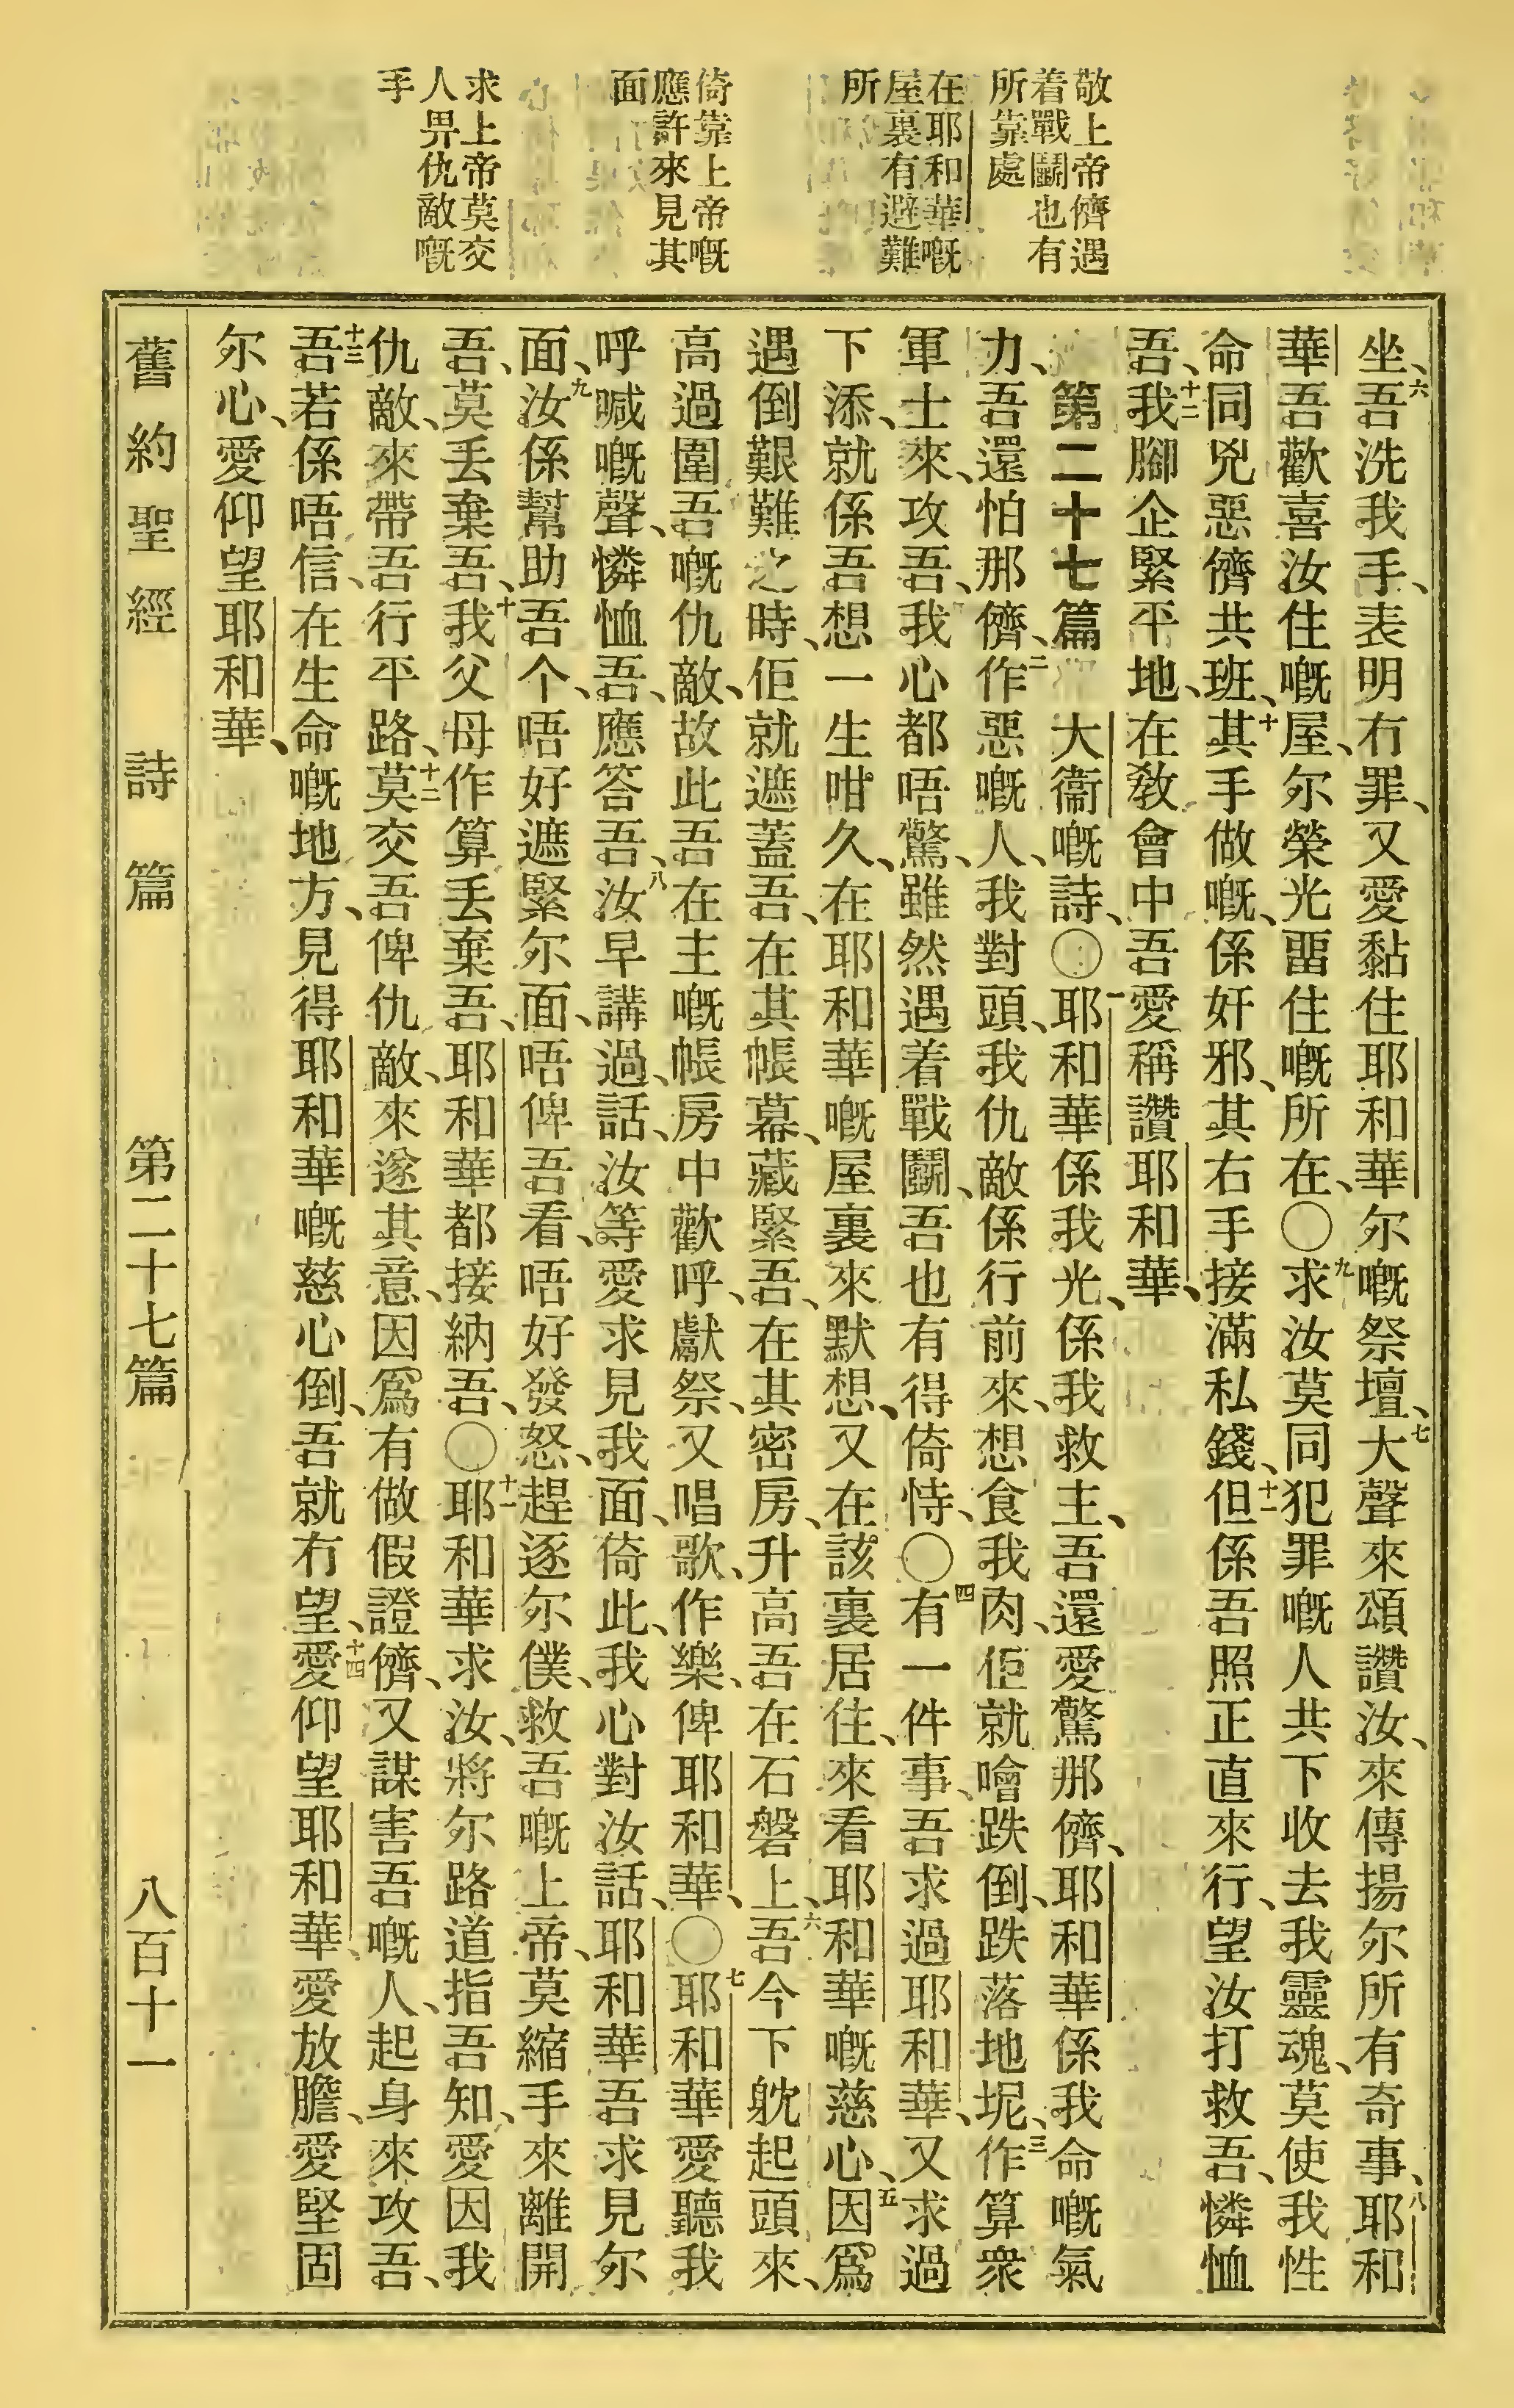 敬上帝儕遇
着戰鬭也有
所靠處
在耶和華嘅
屋裏有避難
所
倚靠上帝嘅
應許來見其
面
求上帝莫交
人畀仇敵嘅
手
坐、六吾洗我手、表明冇罪、又愛黏住耶和華尔嘅祭壇、七大聲來頌讚汝、來傳揚尔所有奇事、八耶和
華吾歡喜汝住嘅屋、尔榮光畱住嘅所在、〇九求汝莫同犯罪嘅人共下收去我靈魂、莫使我性
命同兇惡儕共班、十其手做嘅、係奸邪、其右手接滿私錢、十一但係吾照正直來行、望汝打救吾、憐恤
吾、十二我腳企緊平地、在敎會中吾愛稱讚耶和華、
第二十七篇 大衞嘅詩、〇一耶和華係我光、係我救主、吾還愛驚那儕、耶和華係我命嘅氣
力、吾還怕那儕、二作惡嘅人、我對頭、我仇敵係行前來、想食我肉、佢就噲跌倒、跌落地坭、三作算衆
軍士來、攻吾、我心都唔驚、雖然遇着戰鬭、吾也有得倚恃、〇四有一件事、吾求過耶和華、又求過
下添、就係吾想一生咁久、在耶和華嘅屋裏來默想、又在該裏居住、來看耶和華嘅慈心、五因爲
遇倒艱難之時、佢就遮蓋吾、在其帳幕、藏緊吾、在其密房、升高吾在石磐上、六吾今下躭起頭來、
高過圍吾嘅仇敵、故此吾在主嘅帳房中歡呼、獻祭、又唱歌、作樂、俾耶和華、〇七耶和華愛聽我
呼喊嘅聲、憐恤吾、應答吾、八汝早講過、話、汝等愛求見我面、倚此、我心對汝話、耶和華吾求見尔
面、九汝係幫助吾个、唔好遮緊尔面、唔俾吾看、唔好發怒、趕逐尔僕、救吾嘅上帝、莫縮手來離開
吾、莫丢棄吾、十我父母作算丢棄吾、耶和華都接納吾、〇十一耶和華求汝、將尔路道指吾知、愛因我
仇敵、來帶吾行平路、十二莫交吾俾仇敵、來遂其意、因爲有做假證儕、又謀害吾嘅人、起身來攻吾、
十三吾若係唔信、在生命嘅地方、見得耶和華嘅慈心倒、吾就冇望、十四愛仰望耶和華、愛放膽、愛堅固
尔心、愛仰望耶和華、
舊約聖經 詩篇 第二十七篇 八百十一